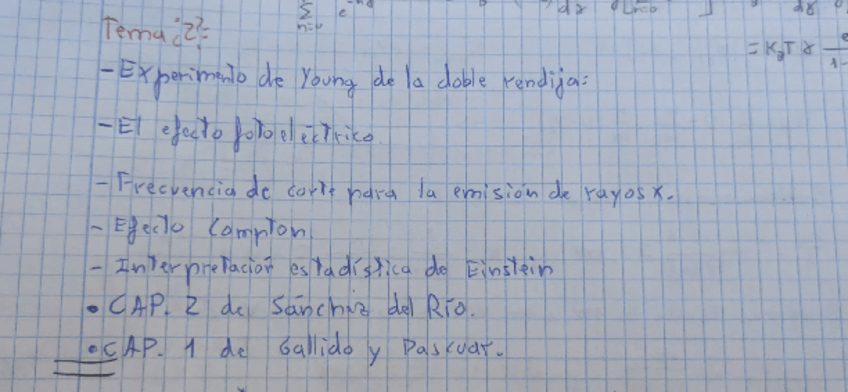 ∑ e
n=0
dx
dx
= K_B T x
1-
Tema ¿2?:
- Experimento de Young de la doble rendija:
- El efecto fotoeléctrico
- Frecuencia de corte para la emisión de rayos x.
- Efecto Compton
- Interpretación estadística de Einstein
• CAP. 2 de Sánchez del Río.
• CAP. 1 de Gallido y Pascual.